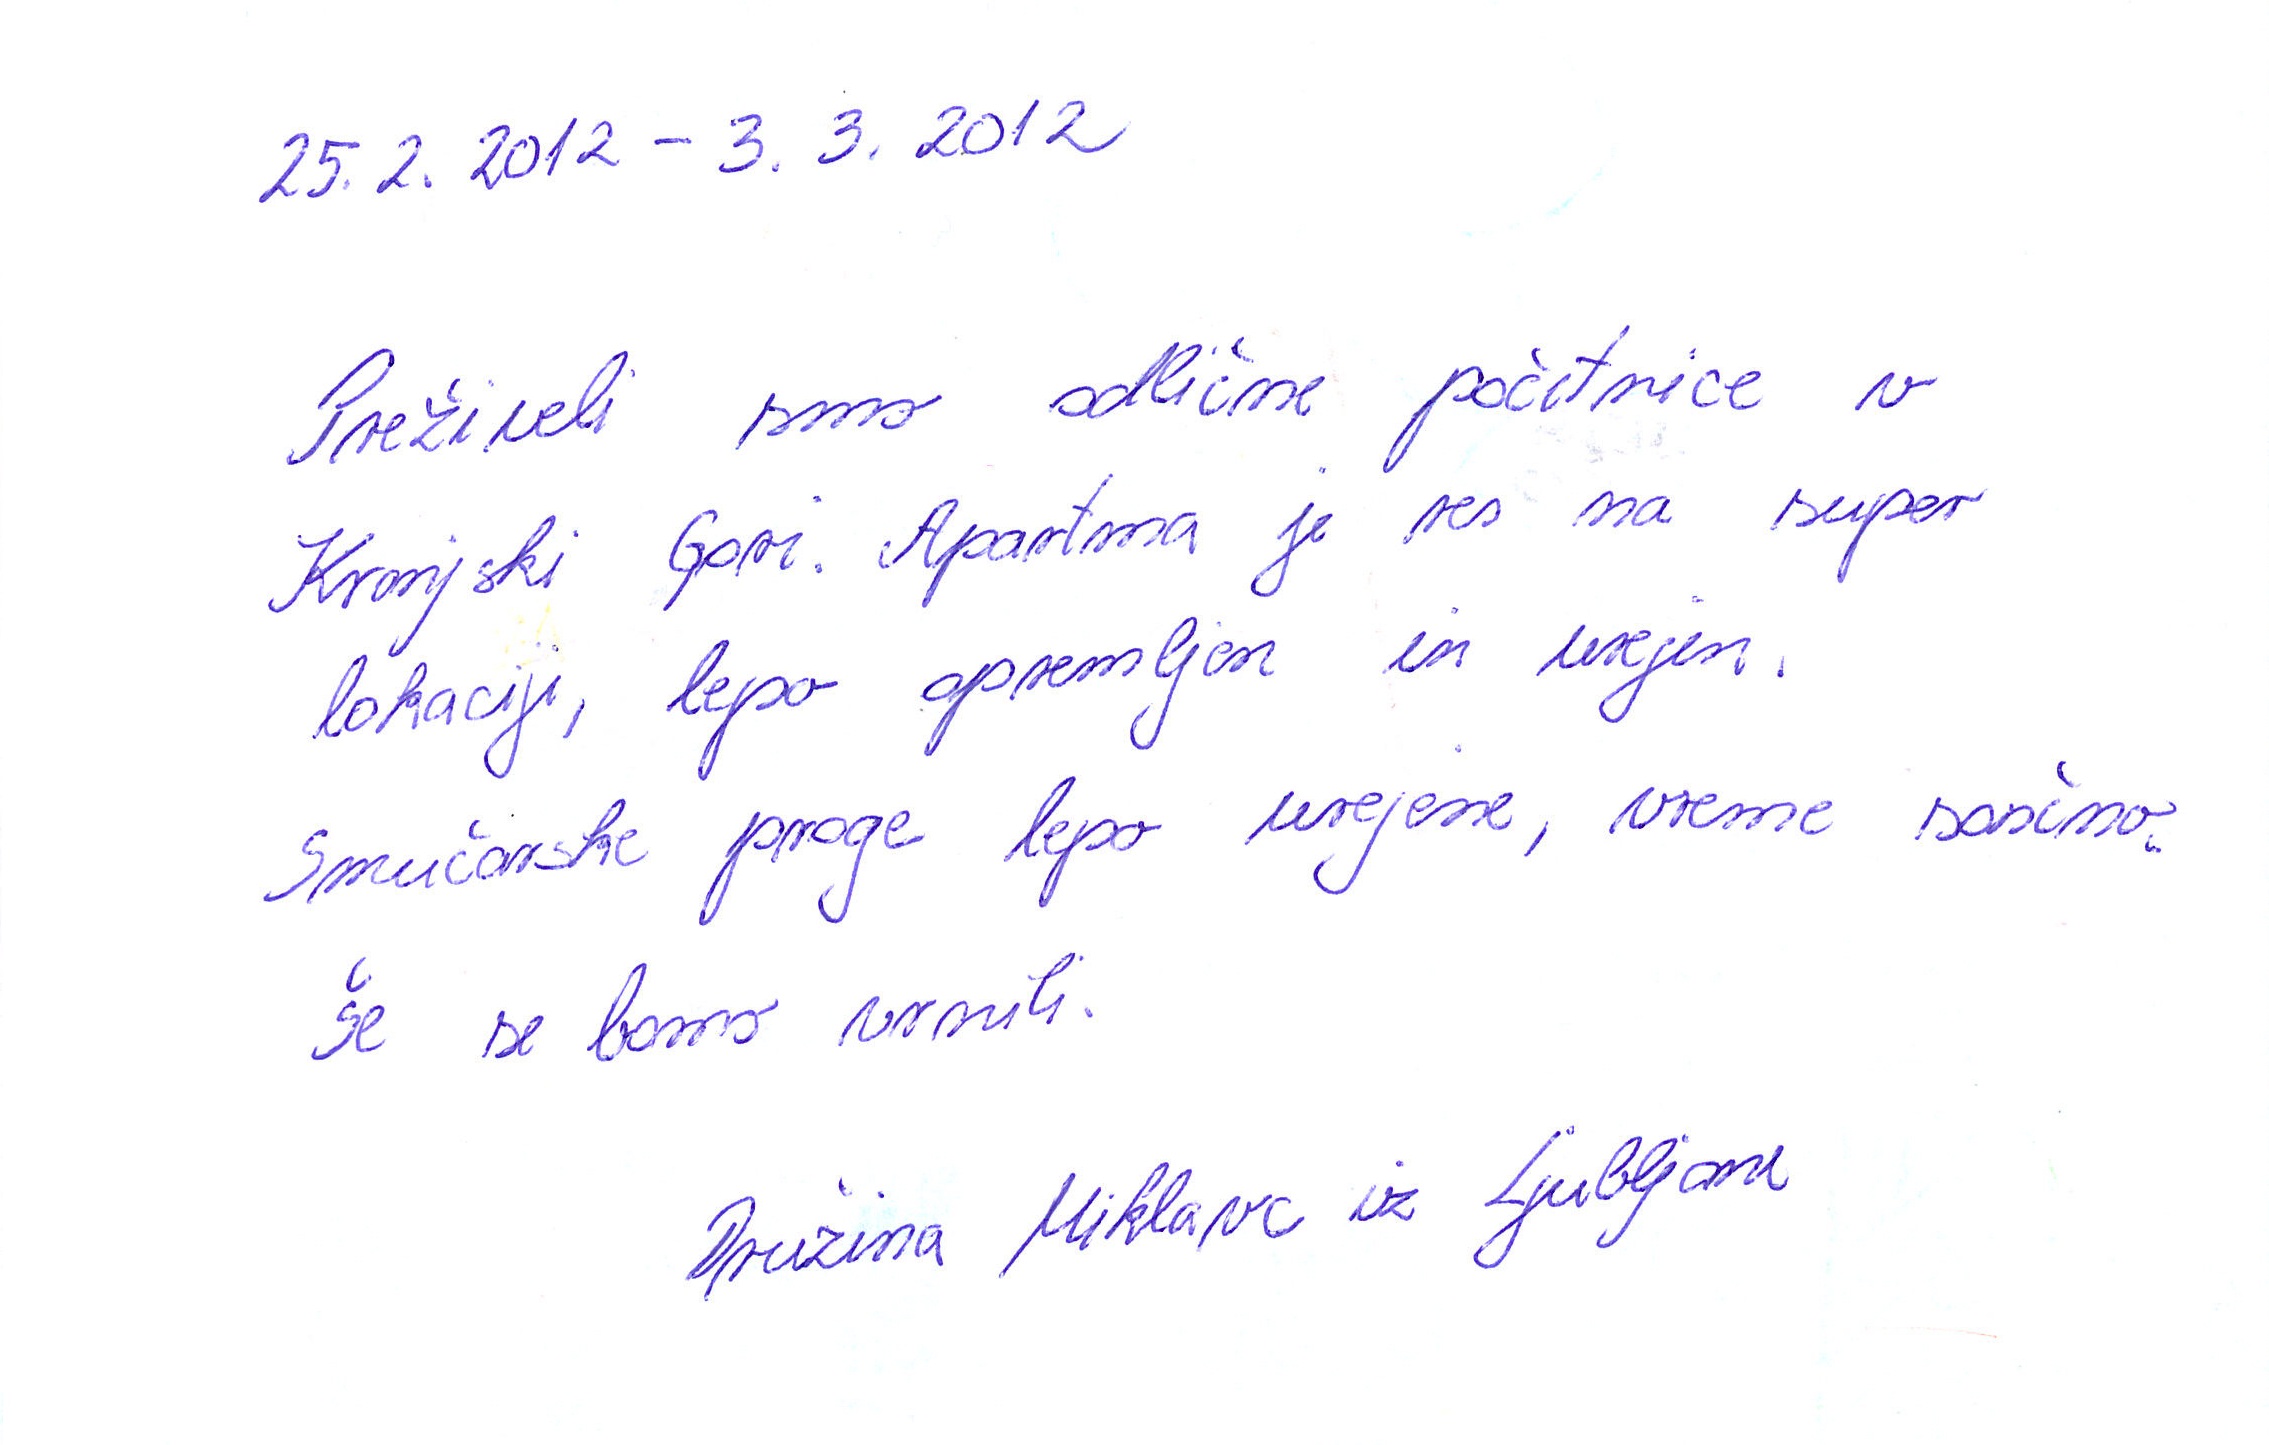 25. 2. 2012 - 3. 3. 2012
Preživeli smo odlične počitnice v
Kranjski Gori. Apartma je res na super
lokaciji, lepo opremljen in urejen.
Smučarske proge lepo urejene, vreme
Še se bomo vrnili.
Družina Miklavc iz Ljubljane